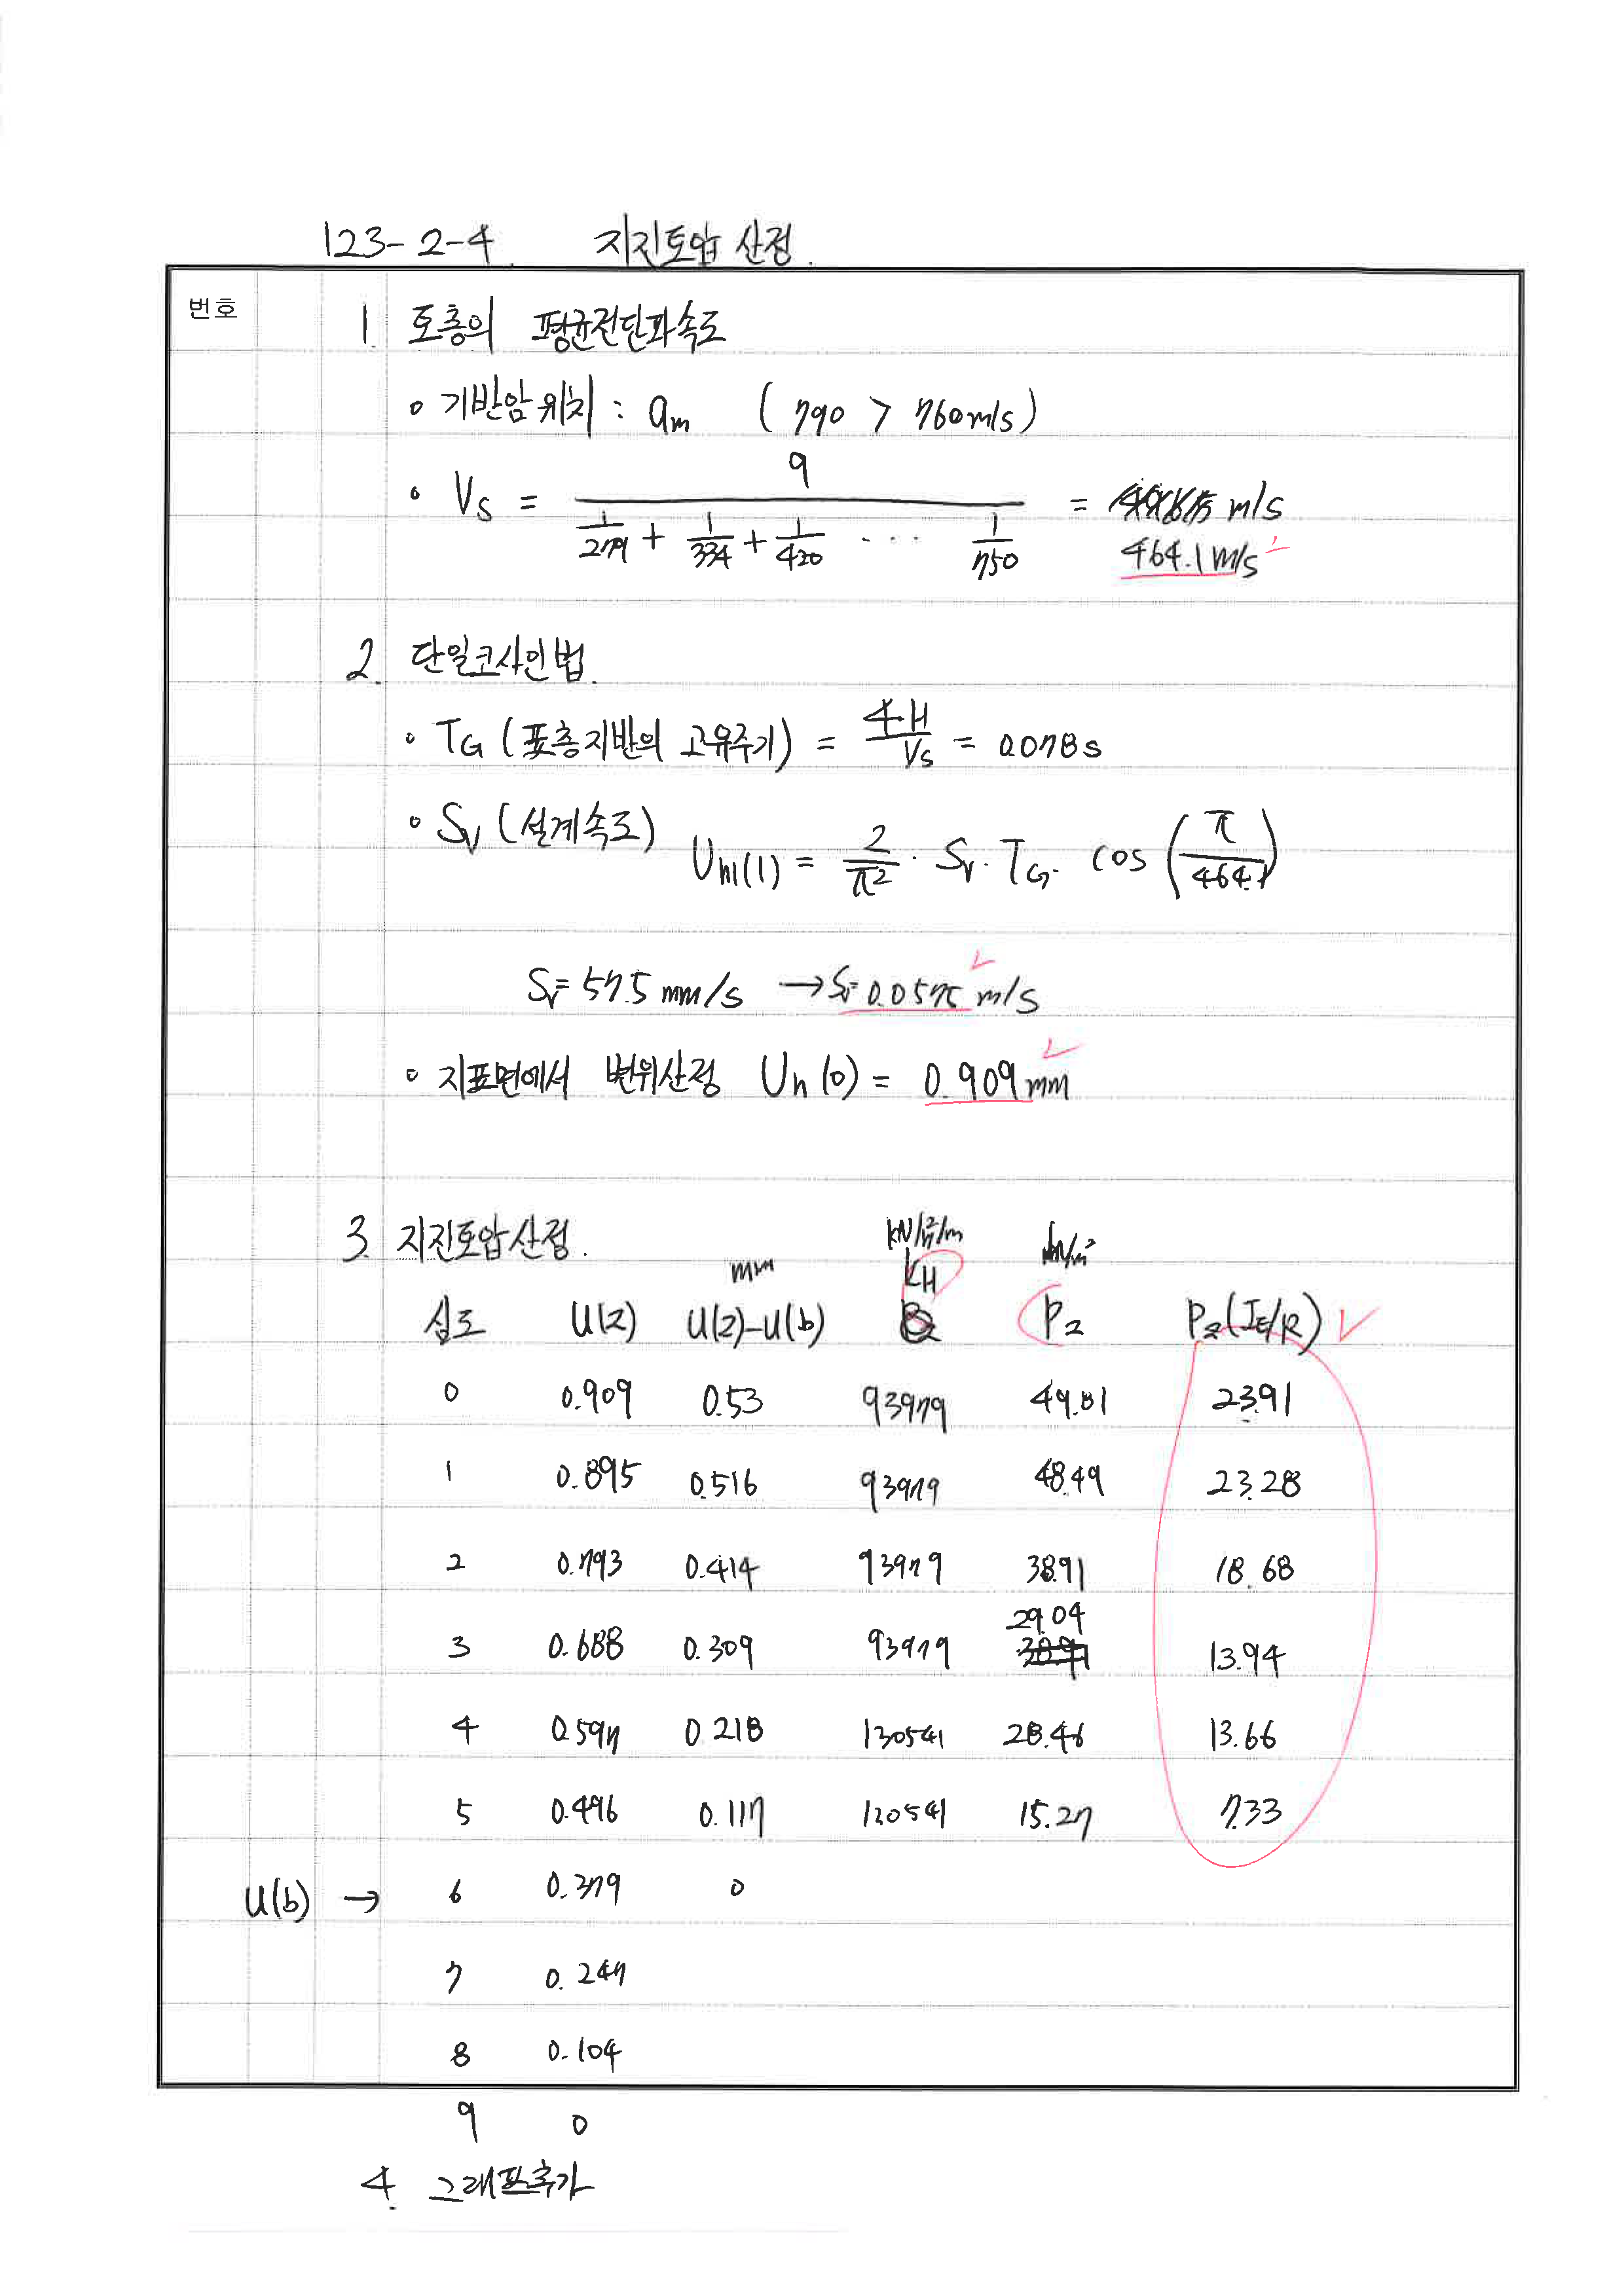 123-2-4. 지진토압 산정.
번호
1. 토층의 평균전단파속도
∘ 기반암 위치 : 9m (790 > 760m/s)
∘ Vs = 9 / (1/279 + 1/334 + 1/420 ... 1/750) = m/s
464.1 m/s
2. 단일코사인법.
∘ TG (표층지반의 고유주기) = 4H/Vs = 0.078s
∘ Sv (설계속도) Uh(1) = 2/π² · Sv · TG · cos(π/464.1)
Sv = 57.5 mm/s → Sv = 0.0575 m/s
∘ 지표면에서 변위산정 Uh(0) = 0.909mm
3. 지진토압산정.
mm kN/m²/m kN/m²
심도 U(z) U(z)-U(b) KH Pz Pz(IE/R)
0 0.909 0.53 93979 49.81 23.91
1 0.895 0.516 93979 48.49 23.28
2 0.793 0.414 93979 38.91 18.68
3 0.688 0.309 93979 29.04 13.94
4 0.597 0.218 130541 28.46 13.66
5 0.496 0.117 130541 15.27 7.33
U(b) → 6 0.379 0
7 0.247
8 0.104
9 0
4. 그래프추가